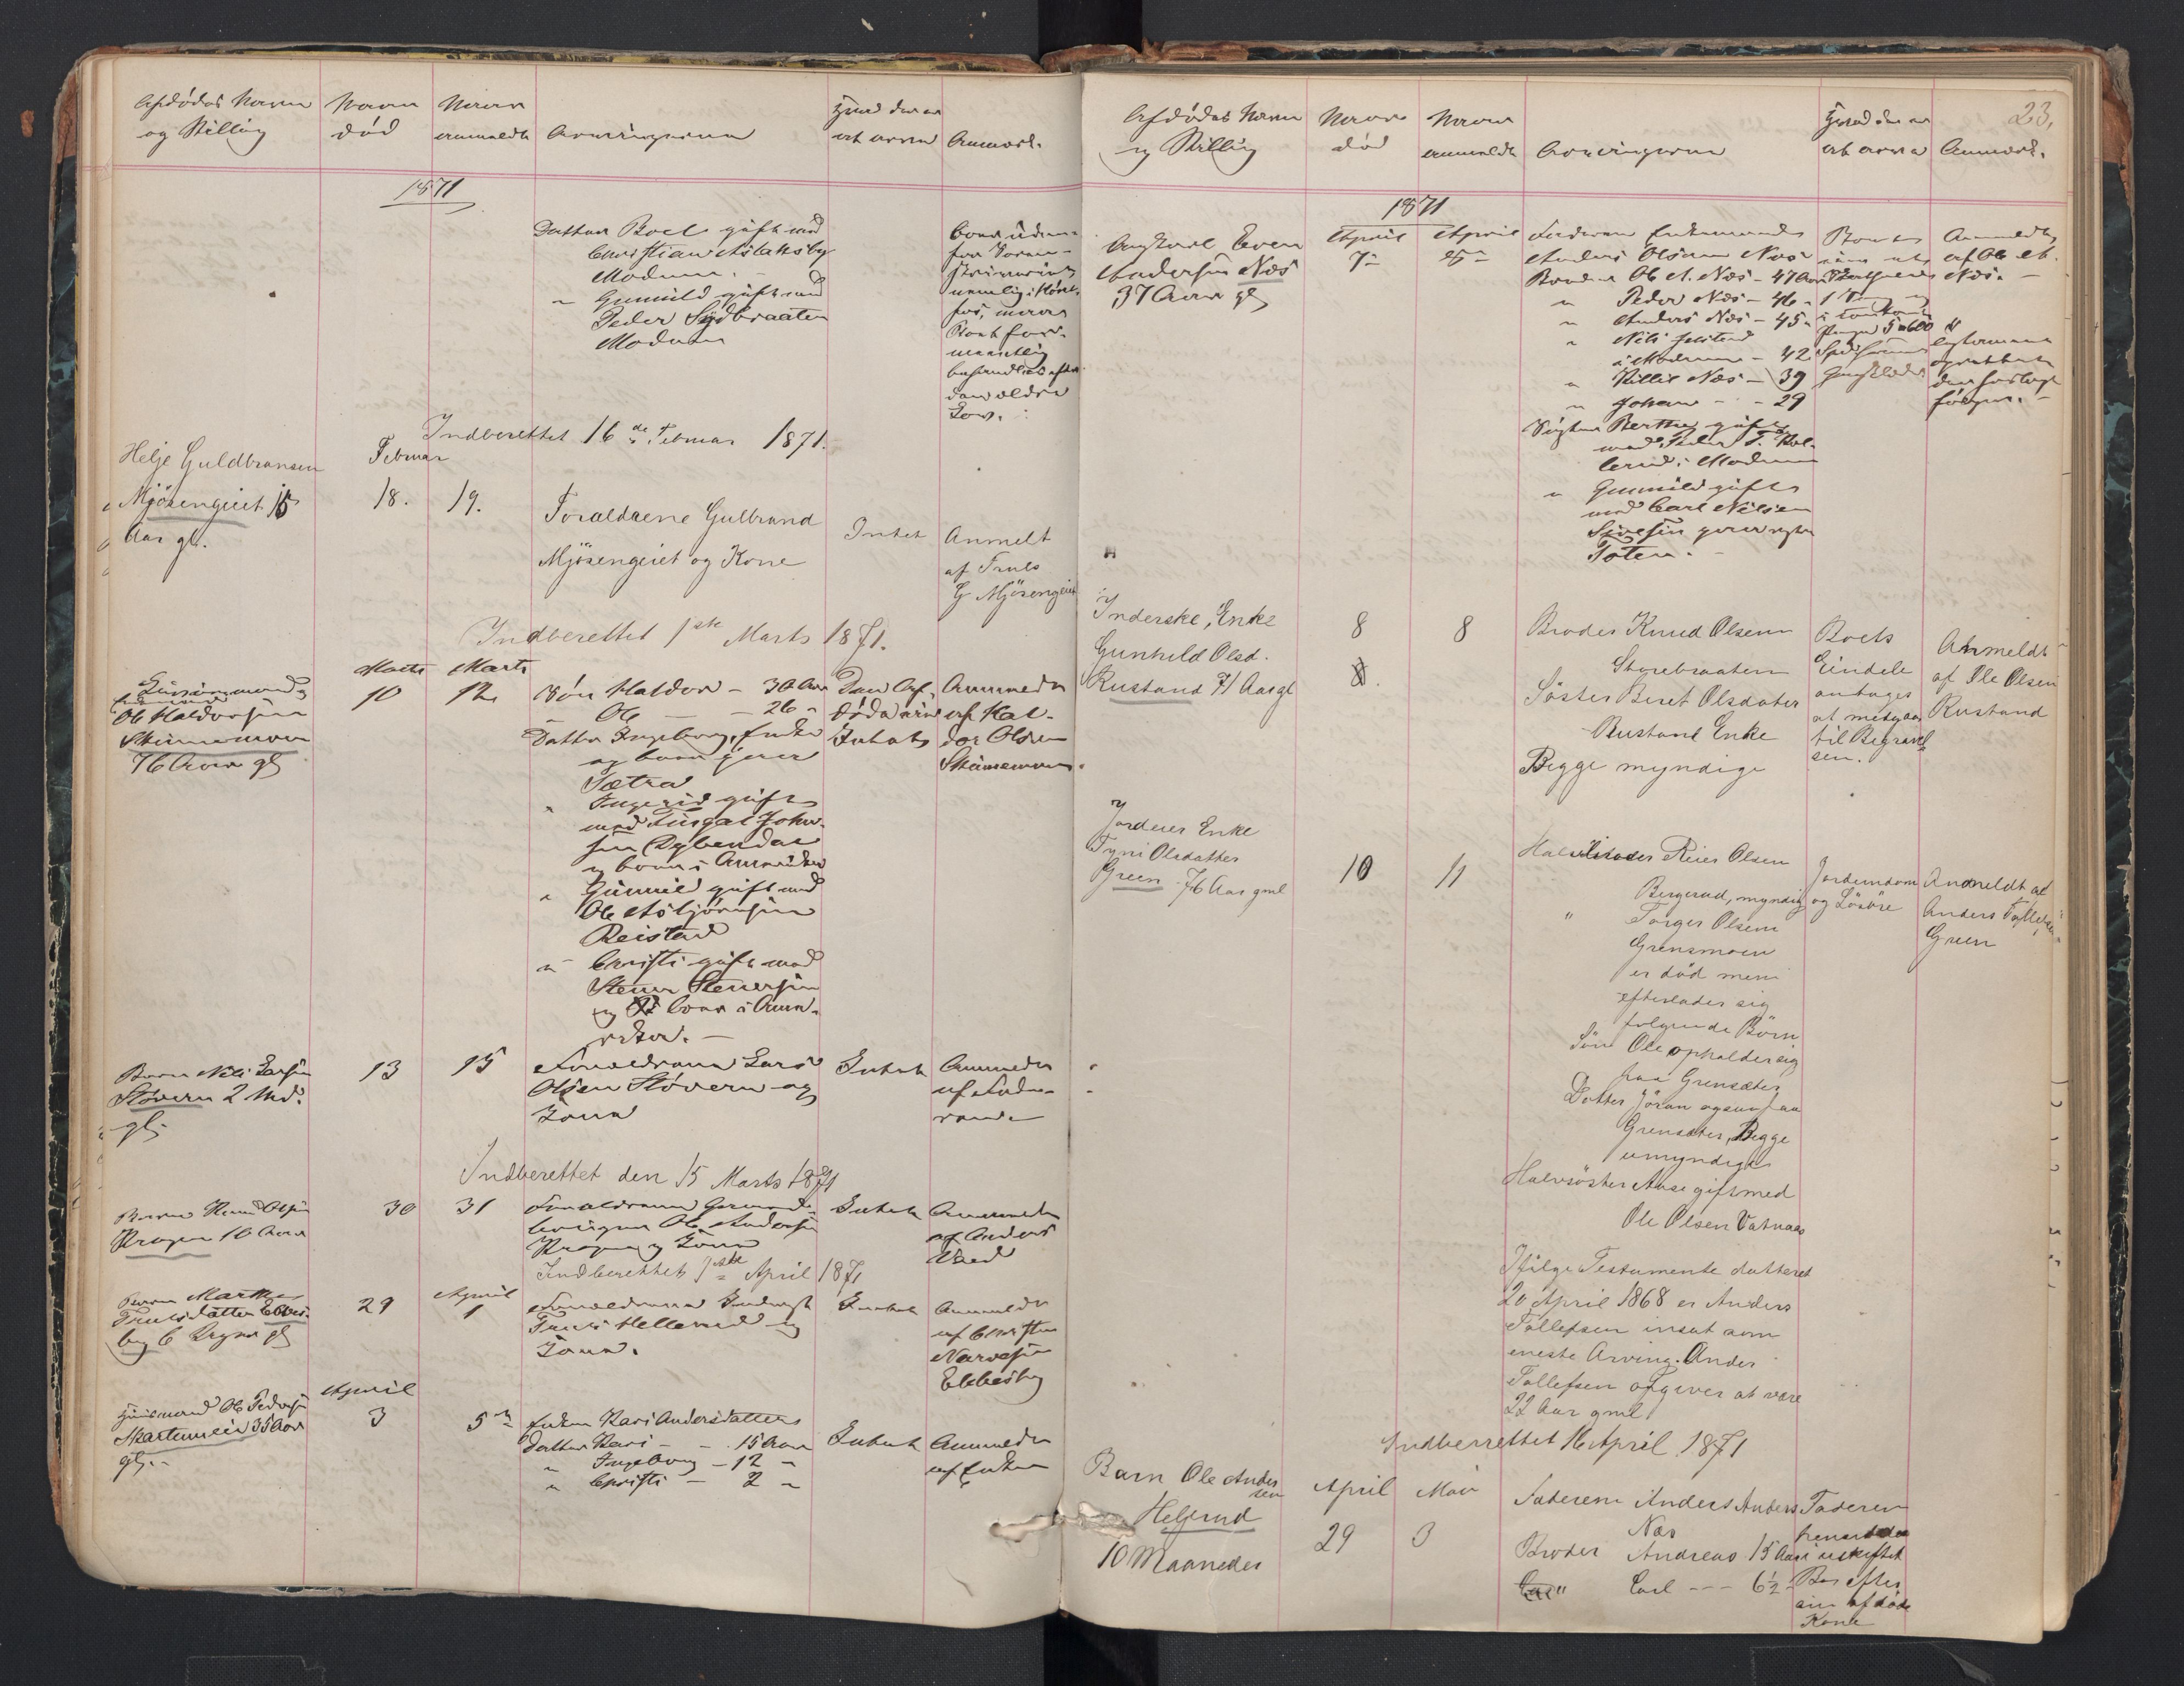 Afdødes Navn
og Stilling
Naar
død
Naar
anmeldt
Arvingerne
Hvad der er
at arve
Anmærk.
1871
Datter Boel gift med
Christian Aslaksby
Modum.
" Gunnild gift med
Peder Sydbraaten
Modum
boer uden-
for Foren-
nemlig i Høne-
fos, maa
Boet for-
mentlig
behandles efter
den ældre
Lov.
Indberettet 16de Februar 1871.
Helje Guldbransen
Mjøsengeiet 15
Aar gl.
Februar
18.
19.
Forældrene Gulbrand
Mjøsengeiet og Kone
Intet
Anmelt
af Truls
G Mjøsengeiet
Indberettet 1ste Marts 1871.
Ole Haldorsen
76 Aar gl
Marts
10
Marts
12
Søn Haldor - 30 Aar
" Ole - - 26 "
Datter Ingeborg, Enke
og boer paa
Sætra
" Ingerid gift
med Torgal John-
sen Dybendal
og boer i Amerika
" Gunnild gift med
Ole Asbjørnsen
Reistad
" Christi gift med
Stener Stenersen
og boer i Ame-
rika. -
Den Af-
døde eier
Intet
Anmeldt
af Hal-
dor Olsen
Barn Nils Larsen
Støvern 2 Md.
gl.
13
15
Forældrene Lars
Olsen Støvern og
Kone
Intet
Anmeldt
af Fade-
ren
Indberettet den 15 Marts 1871
Barn Knud Olsen
Kragen 10 Aar
30
31
Forældrene Gaard-
bruger Ole Andersen
Kragen og Kone
Intet
Anmeldt
af Anders
Indberettet 1ste April 1871
Barn Marthe
Trulsdatter Ebbes-
berg 6 Dage gl
29
April
1
Forældrene Inderst
Truls Hellerud og
Kone.
Intet
Anmeldt
af Christen
Narvesen
Ebbesberg
Husmand Ole Pedersen
Skartumeie 35 Aar
gl. -
April
3
5te
Enken Kari Andersdatter
Datter Kari - - 15 Aar
" Ingeborg - 12 "
" Christi - 2 "
Intet
Anmeldt
af Enken
23.
Afdødes Navn
og Stilling
Naar
død
Naar
anmeldt
Arvingerne
Hvad der er
at arve
Anmærk.
1871
Ungkarl Even
Andersen Næs
37 Aar gl
April
7
April
Faderen Enkemand
Anders Olsen Næs
Broder Ole A. Næs - 47 Aar
" Peder Næs - 46 "
" Anders Næs - 45 "
" Nils
i Modum - 42
" Killil Næs - 39
" Johan - - 29
Søster Berthe gift
med Peder T. Kol-
lerud i Modum
" Gunnild gift
med Carl Nilsen
Toten. -
Anmeldt
af Ole A.
Næs. -
følger. -
Inderske, Enke
Gunhild Olsd.
Rustand 71 Aar gl
8
8
Broder Knud Olsen
Storebraaten
Søster Beret Olsdater
Rustand Enke
Begge myndige
Boets
Eindele
antages
at medgaa
til Begravel
sen.
Anmeldt
af Ole Olsen
Rustand
Jordeier Enke
Tyri Olsdatter
Green 76 Aar gml
10
11
Halvbroder Reier Olsen
Bergerud, myndig
" Torger Olsen
Grensmoen
er død men
efterlader sig
følgende Børn
Søn Ole opholder sig
paa Grensæter
Datter Jøran ogsaa paa
Grensæter, Begge
umyndige
Halvsøster Aase gift med
Ole Olsen Vatnaas
Ifølge Testamente datteret
20 April 1868 er Anders
Tollefsen insat som
eneste Arving. Anders
Tollefsen opgiver at være
22 Aar gml
Jordeindom
og Løsøre
Anmeldt af
Anders Tollefsen
Green
Indberrettet 16 April 1871
Barn Ole Ander
sen
Helgerud
10 Maaneder
April
29
Mai
3
Faderen Anders Anders
Næs
Broder Andreas 15 Aar
" Carl - - - 6½ -
Faderen
hensidder
i uskiftet
Bo efter
sin afdøde
Kone